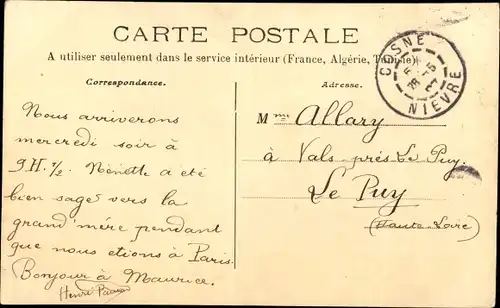 CARTE POSTALE
A utiliser seulement dans le service intérieur (France, Algérie, Tunisie)
Correspondance.
Adresse.
COSNE
NIÈVRE
Nous arriverons
mercredi soir à
9H. 1/2. Nénette a été
bien sage vers la
grand'mère pendant
que nous etions à Paris.
Bonjour à Maurice.
Henri
Mme Allary
à Vals près Le Puy.
Le Puy
(Haute-Loire)